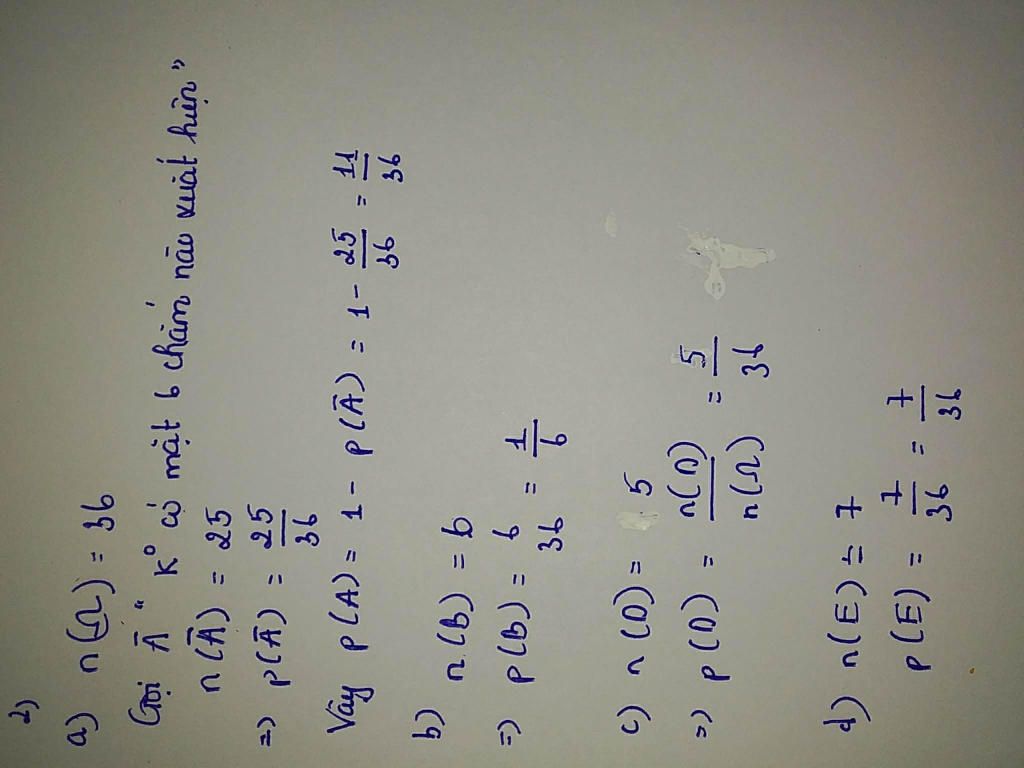 2)
a) n(Ω) = 36
Gọi Ā " K° có mặt 6 chấm nào xuất hiện"
n(Ā) = 25
=> P(Ā) = 25/36
Vậy P(A) = 1 - P(Ā) = 1 - 25/36 = 11/36
b) n(B) = 6
=) P(B) = 6/36 = 1/6
c) n(D) = 5
=> P(D) = n(D)/n(Ω) = 5/36
d) n(E) = 7
P(E) = 7/36 = 7/36